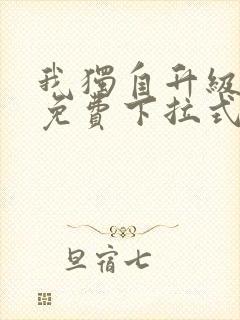 我獨自升級
免費下拉式
旦宿七